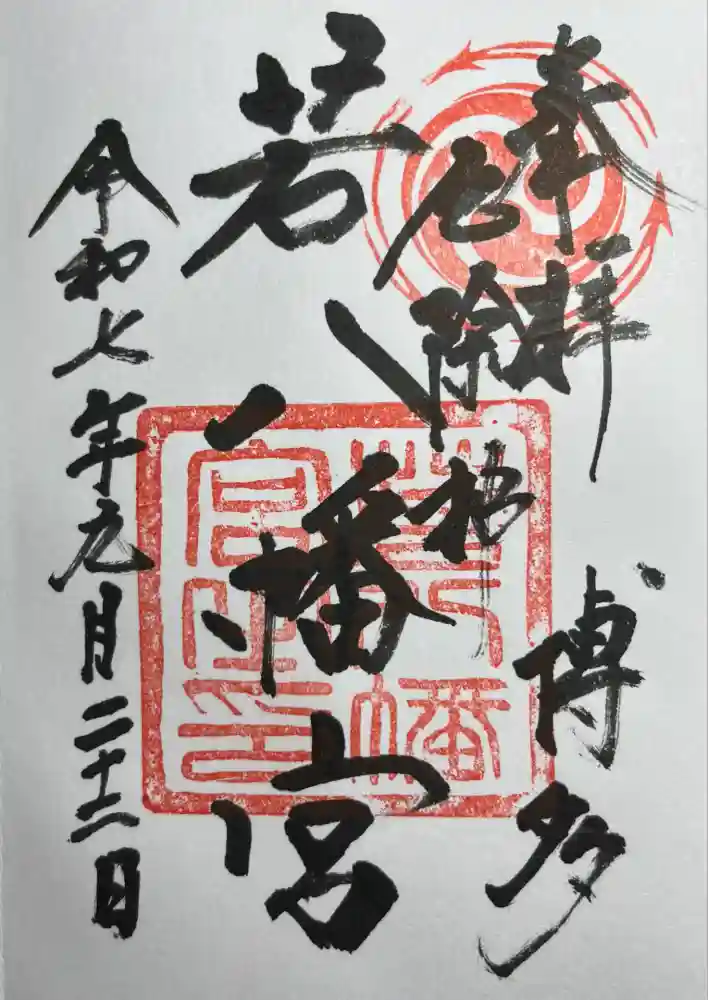 奉拝 博多
厄除
若八幡宮
令和七年九月二十二日
若八幡
宮之印